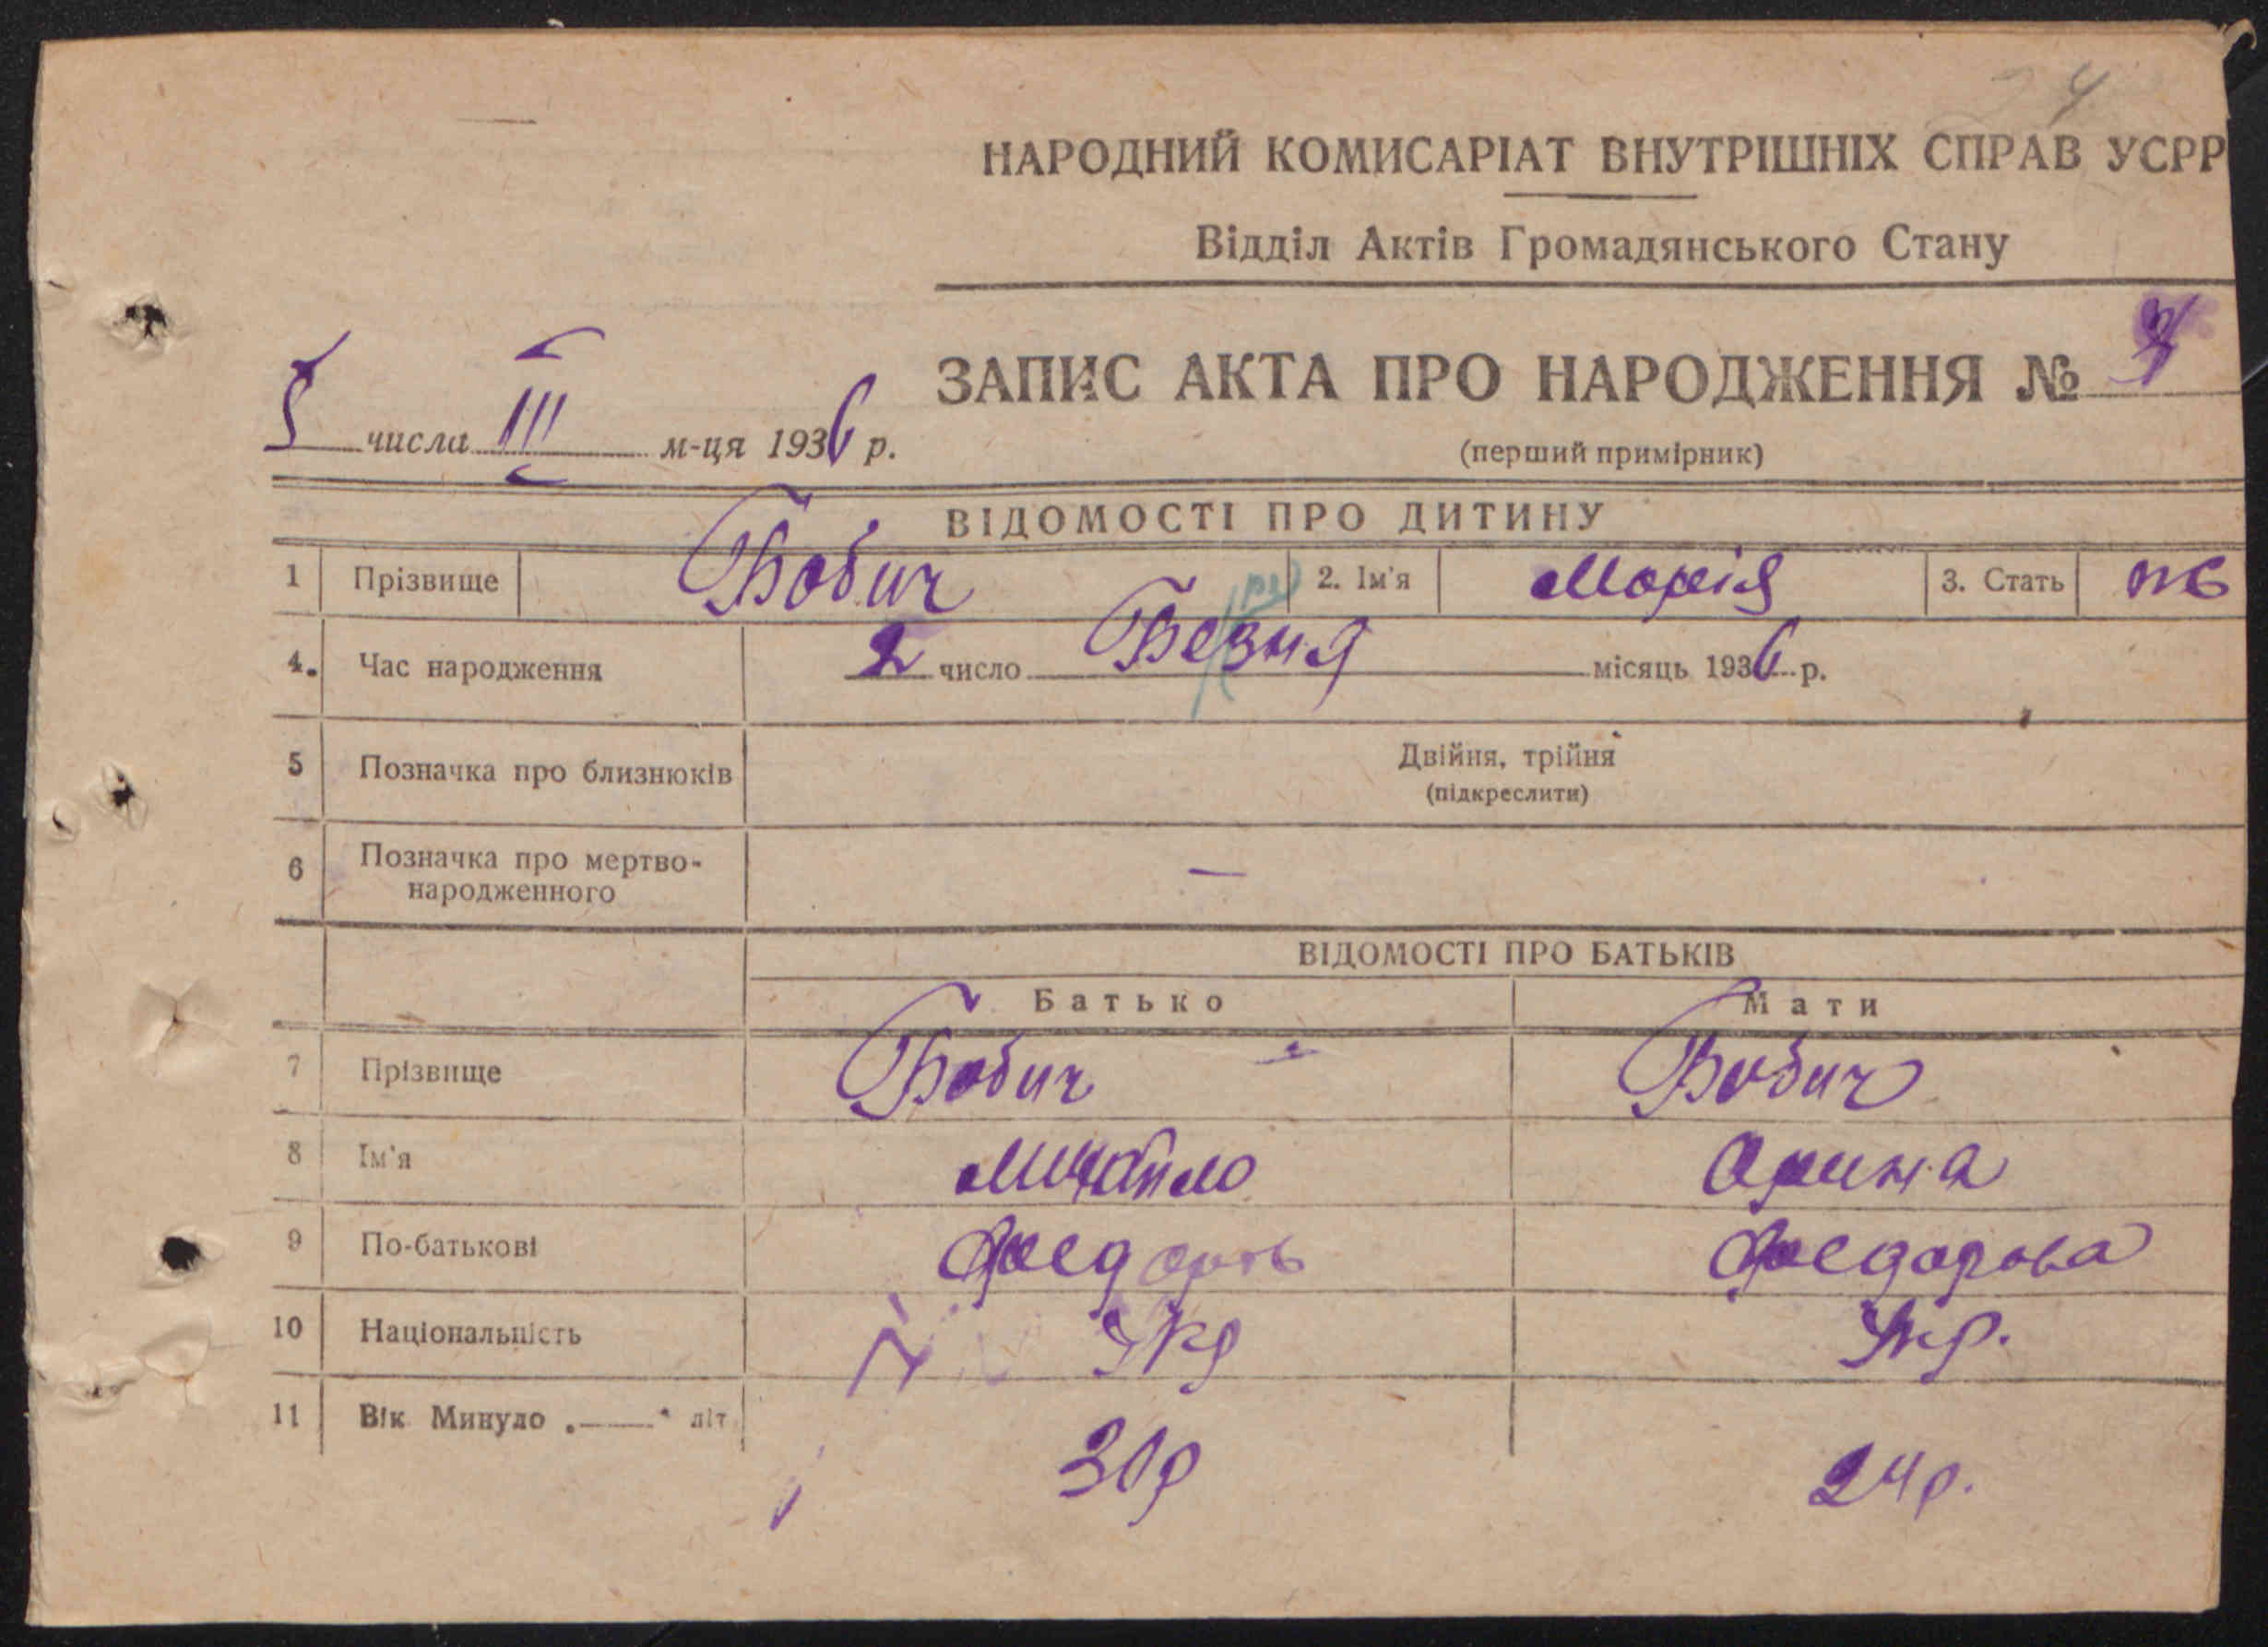 4
НАРОДНИЙ КОМИСАРІАТ ВНУТРІШНІХ СПРАВ УСРР
Відділ Актів Громадянського Стану
ЗАПИС АКТА ПРО НАРОДЖЕННЯ №
5 числа III м-ця 1936 р.
(перший примірник)
ВІДОМОСТІ ПРО ДИТИНУ
1 Прізвище Бобич 2. Ім'я Марія 3. Стать ж
4. Час народження 2 число Безня місяць 1936 р.
5 Позначка про близнюків Двійня, трійня
(підкреслити)
6 Позначка про мертво-
народженного —
ВІДОМОСТІ ПРО БАТЬКІВ
Батько Мати
7 Прізвище Бобич Бобич
8 Ім'я Михайло Орина
9 По-батькові Федоров Федорова
10 Національність Укр Укр.
11 Вік Минуло „——" літ 30р 24р.